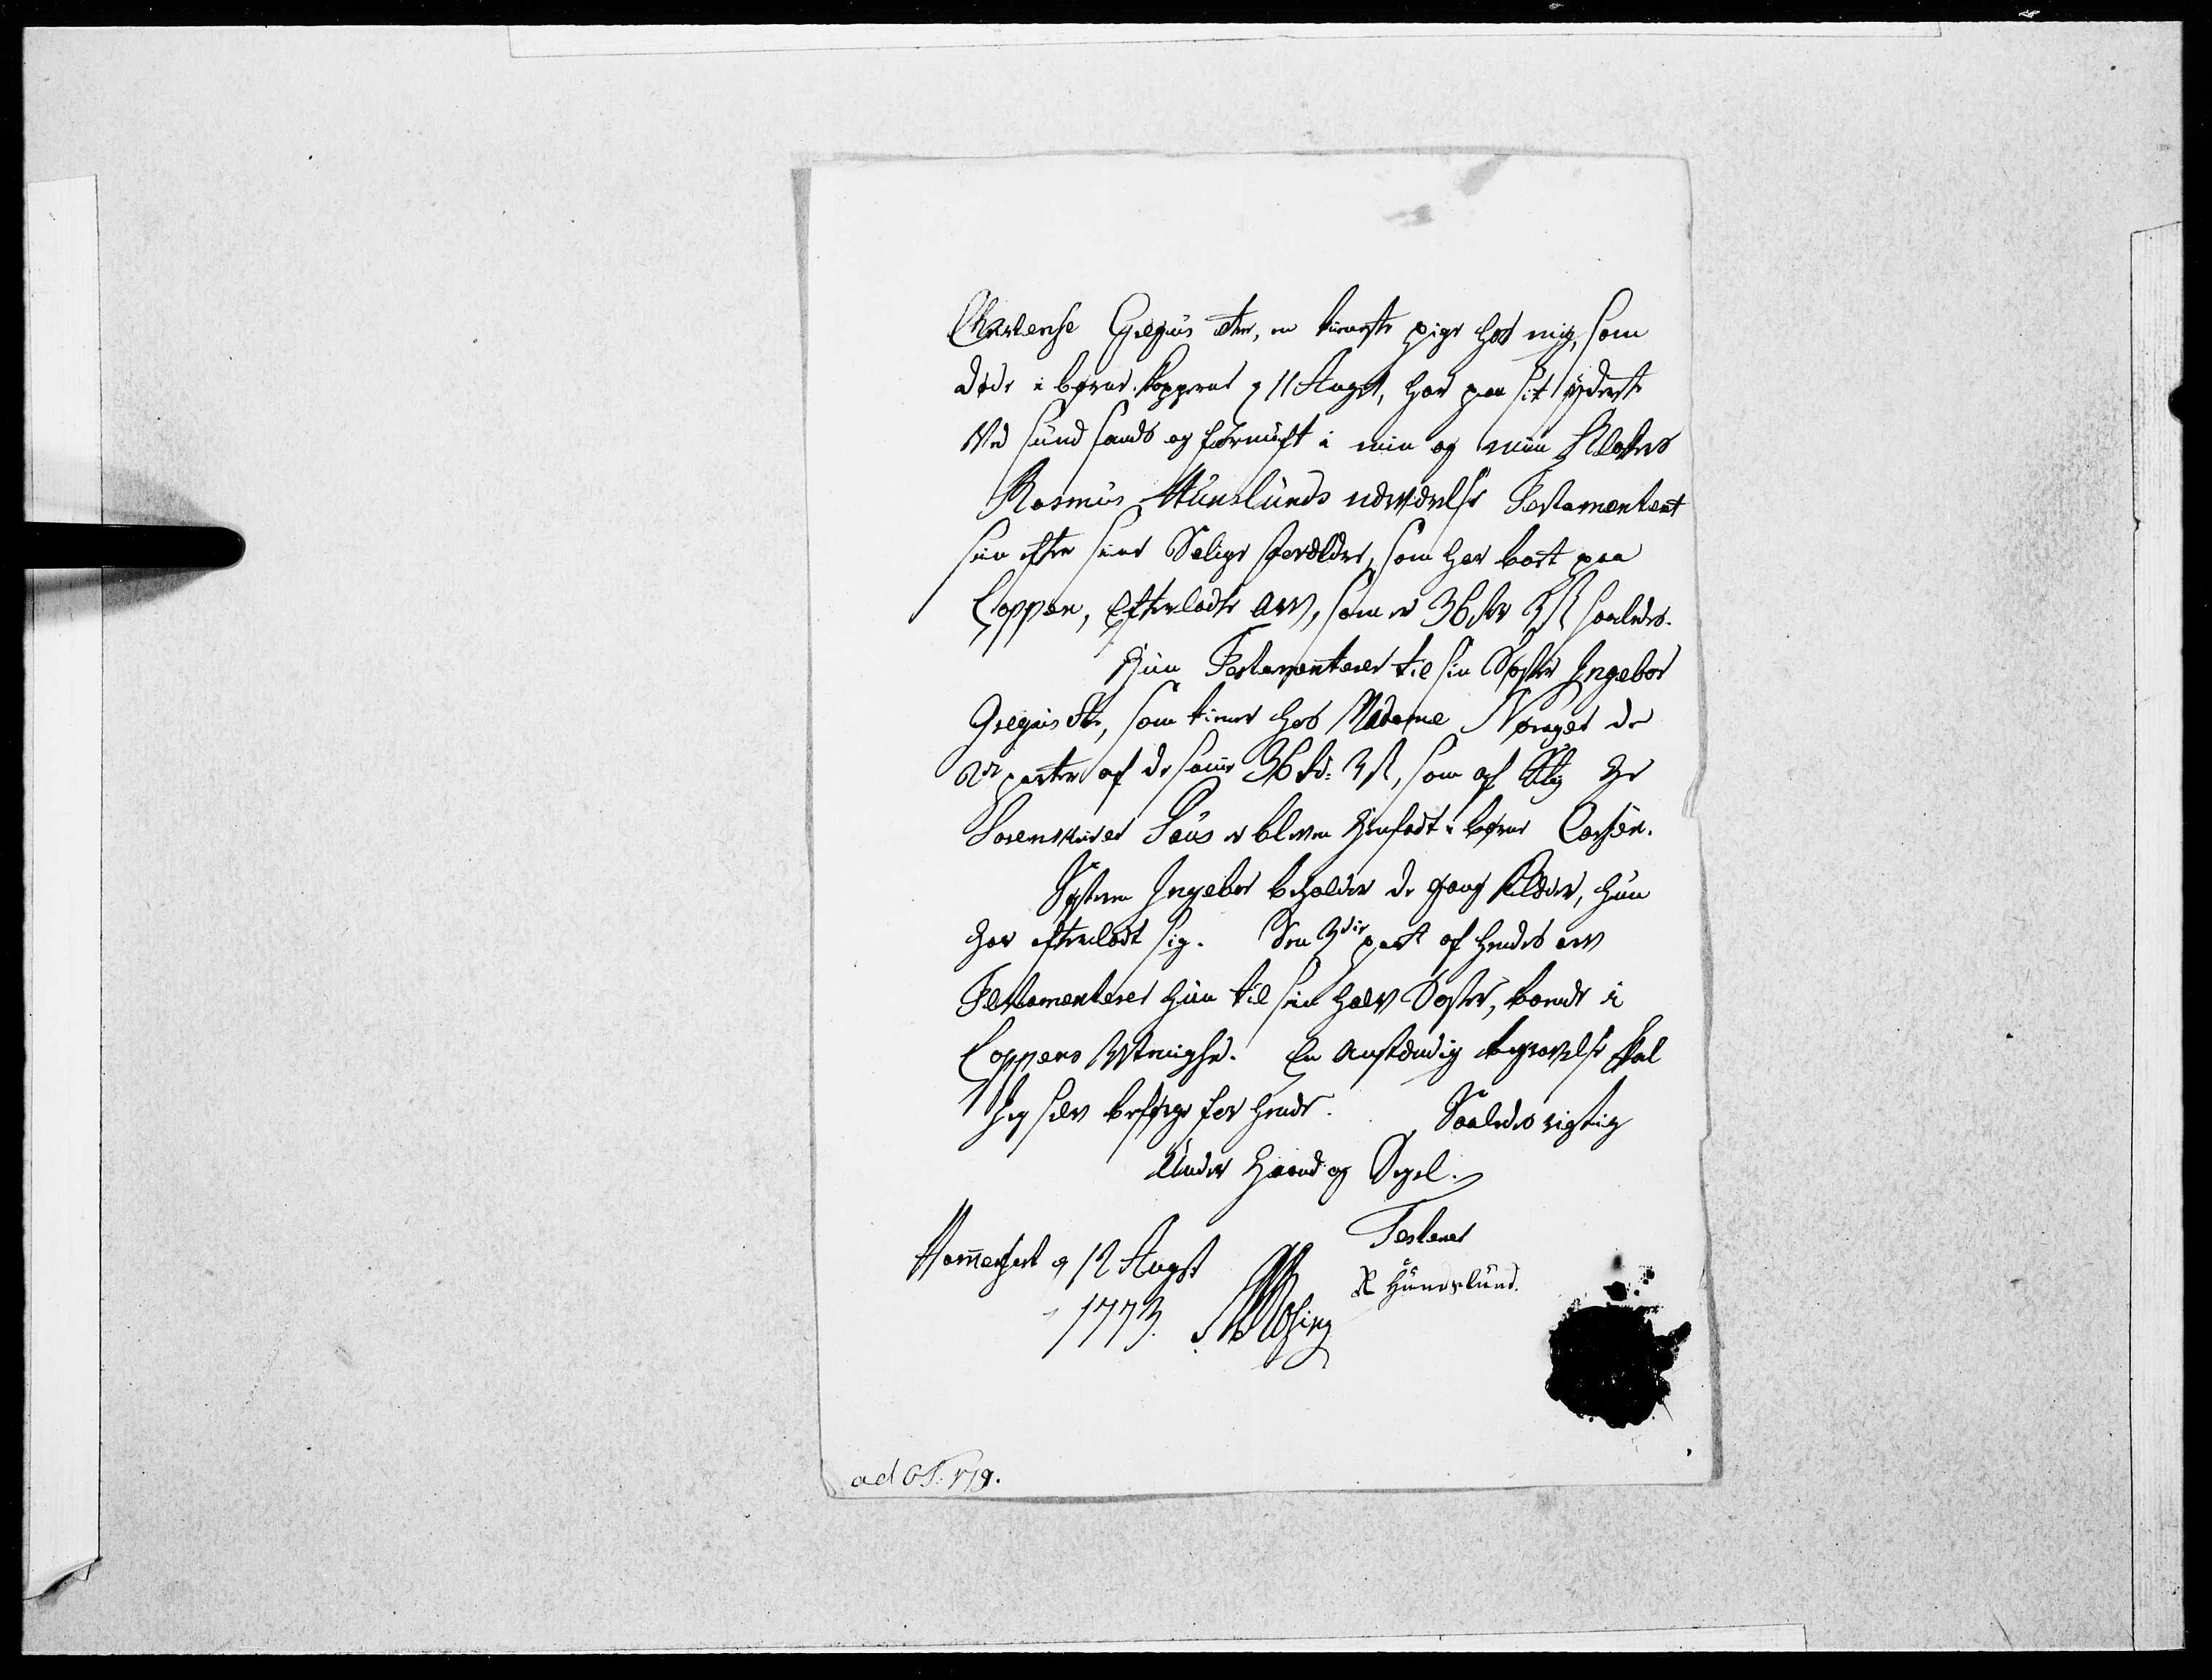 Charlense Gregus dtr, en tieneste pige hos mig, som
døde i børne-kopperne d 11 August, har paa sit yderste
Ved sund sands og fornuft i min og min
Rasmus Hunslunds nærværelse Testamenteret
sin efter sine Salige forældre, som har boet paa
Loppen, Efterladte arv, som er 36 rdr 3 ß saaledes.
Hun Testamenterer til sin Søster Ingebor
Gregus dtr, som tiener hos Madame Norager de
2de parter af de samme 36 rd: 3 ß, som af Slg Hr
Sorenskriver Paus er bleven indsadt i børne Cassen.
Søsteren Ingebor beholder de gang klæder, hun
har efterladt sig. Den 3die part af hendes arv
Testamenterer hun til sin halv Søster, boende i
Loppens. En Anstændig begravelse skal
Jeg selv besørge for hende. Saaledes rigtig
Under Haand og Segl.
Hammerfest d 12 Augst
1773.
Testerer
R Hundslund.
ad